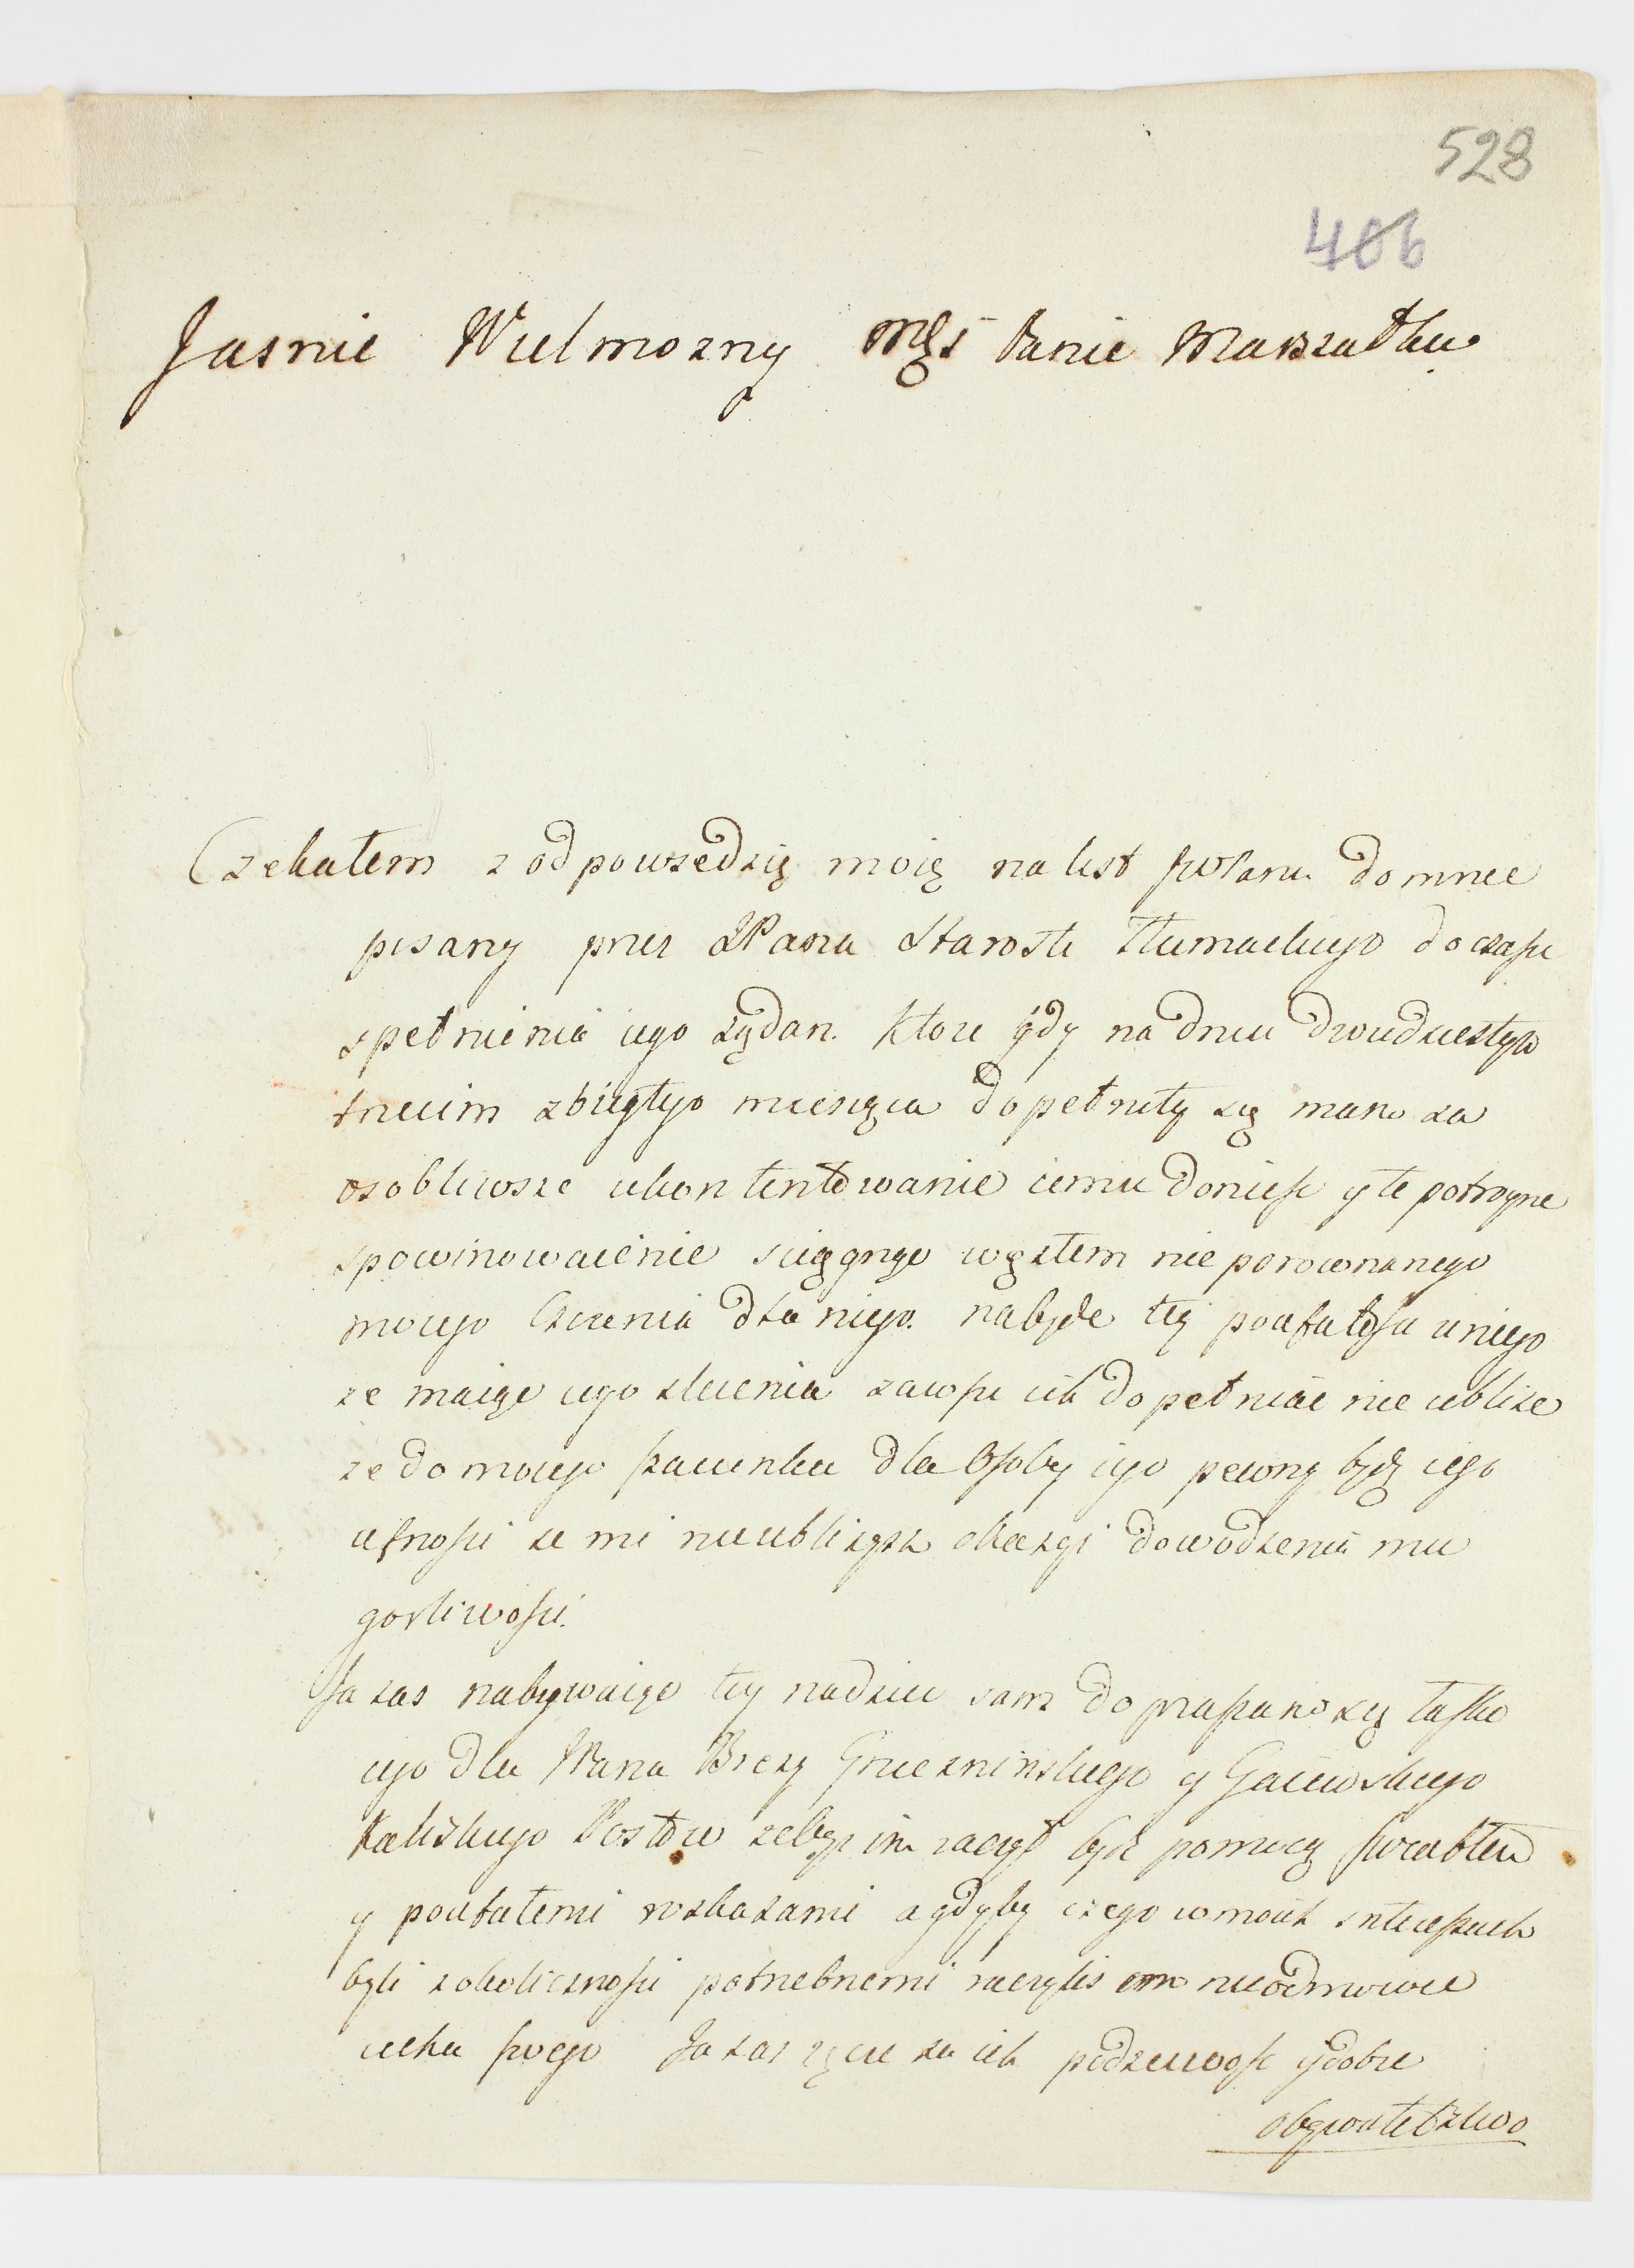 528
406
Jasnie Wielmozny Mśći Panie Marszałku
Czekałem z odpowiedzią moią na list JWPana do mnie
pisany przez JPana Starostę Tłumackiego do czasu
spełnienia iego żądan. ktore gdy na dniu dwudziestym
trzecim zbiegłego miesiąca dopełniły się mam za
osobliwsze ukontentowanie iemu donieść y te potroyne
spowinowacenie sciągnąc węzłem nieporownanego
moiego czcienia dla niego. nabyde tey poufałosci u niego
ze maiąc iego zlecenia zawsze ich dopełniać nie ubliże
ze do moiego szacunku dla osoby iego pewny będą iego
ufnosci ze mi nieubliżysz okazyi dowodzenia mu
gorliwosci.
Ja zas nabywaiąc tey nadziei sam dopraszam się łaski
iego dla JPana Brezy Gniezninskiego y Gaiewskiego
Kaliskiego Posłow zebys im raczył być pomocą swiatłem
y poufałemi wskazami a gdyby czego w moich interessach
byli z okolicznosci potrzebnemi raczyłis im nieodmowić
ucha swego Ja zas ręcze za ich podsciwość y dobre
obywatelstwo